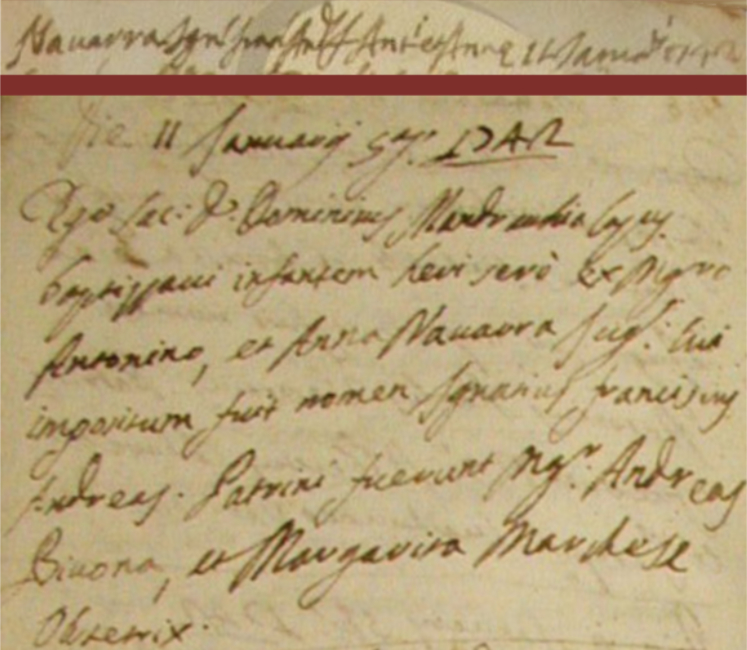 Navarra Ign: Fran: Andr: f. Ant: et Anne 11 Januarij
Die 11 Januarij 5 Ind: 1742
Ego Sac: D. Dominicus Mandracchia Capp:
baptizzavi infantem heri serò ex Mgro
Antonino, et Anna Navarra Jug: Cui
impositum fuit nomen Ignatius Franciscus
Andreas. Patrini fuerunt Mgr. Andreas
Bivona, et Margarita Marchese
Obstetrix.